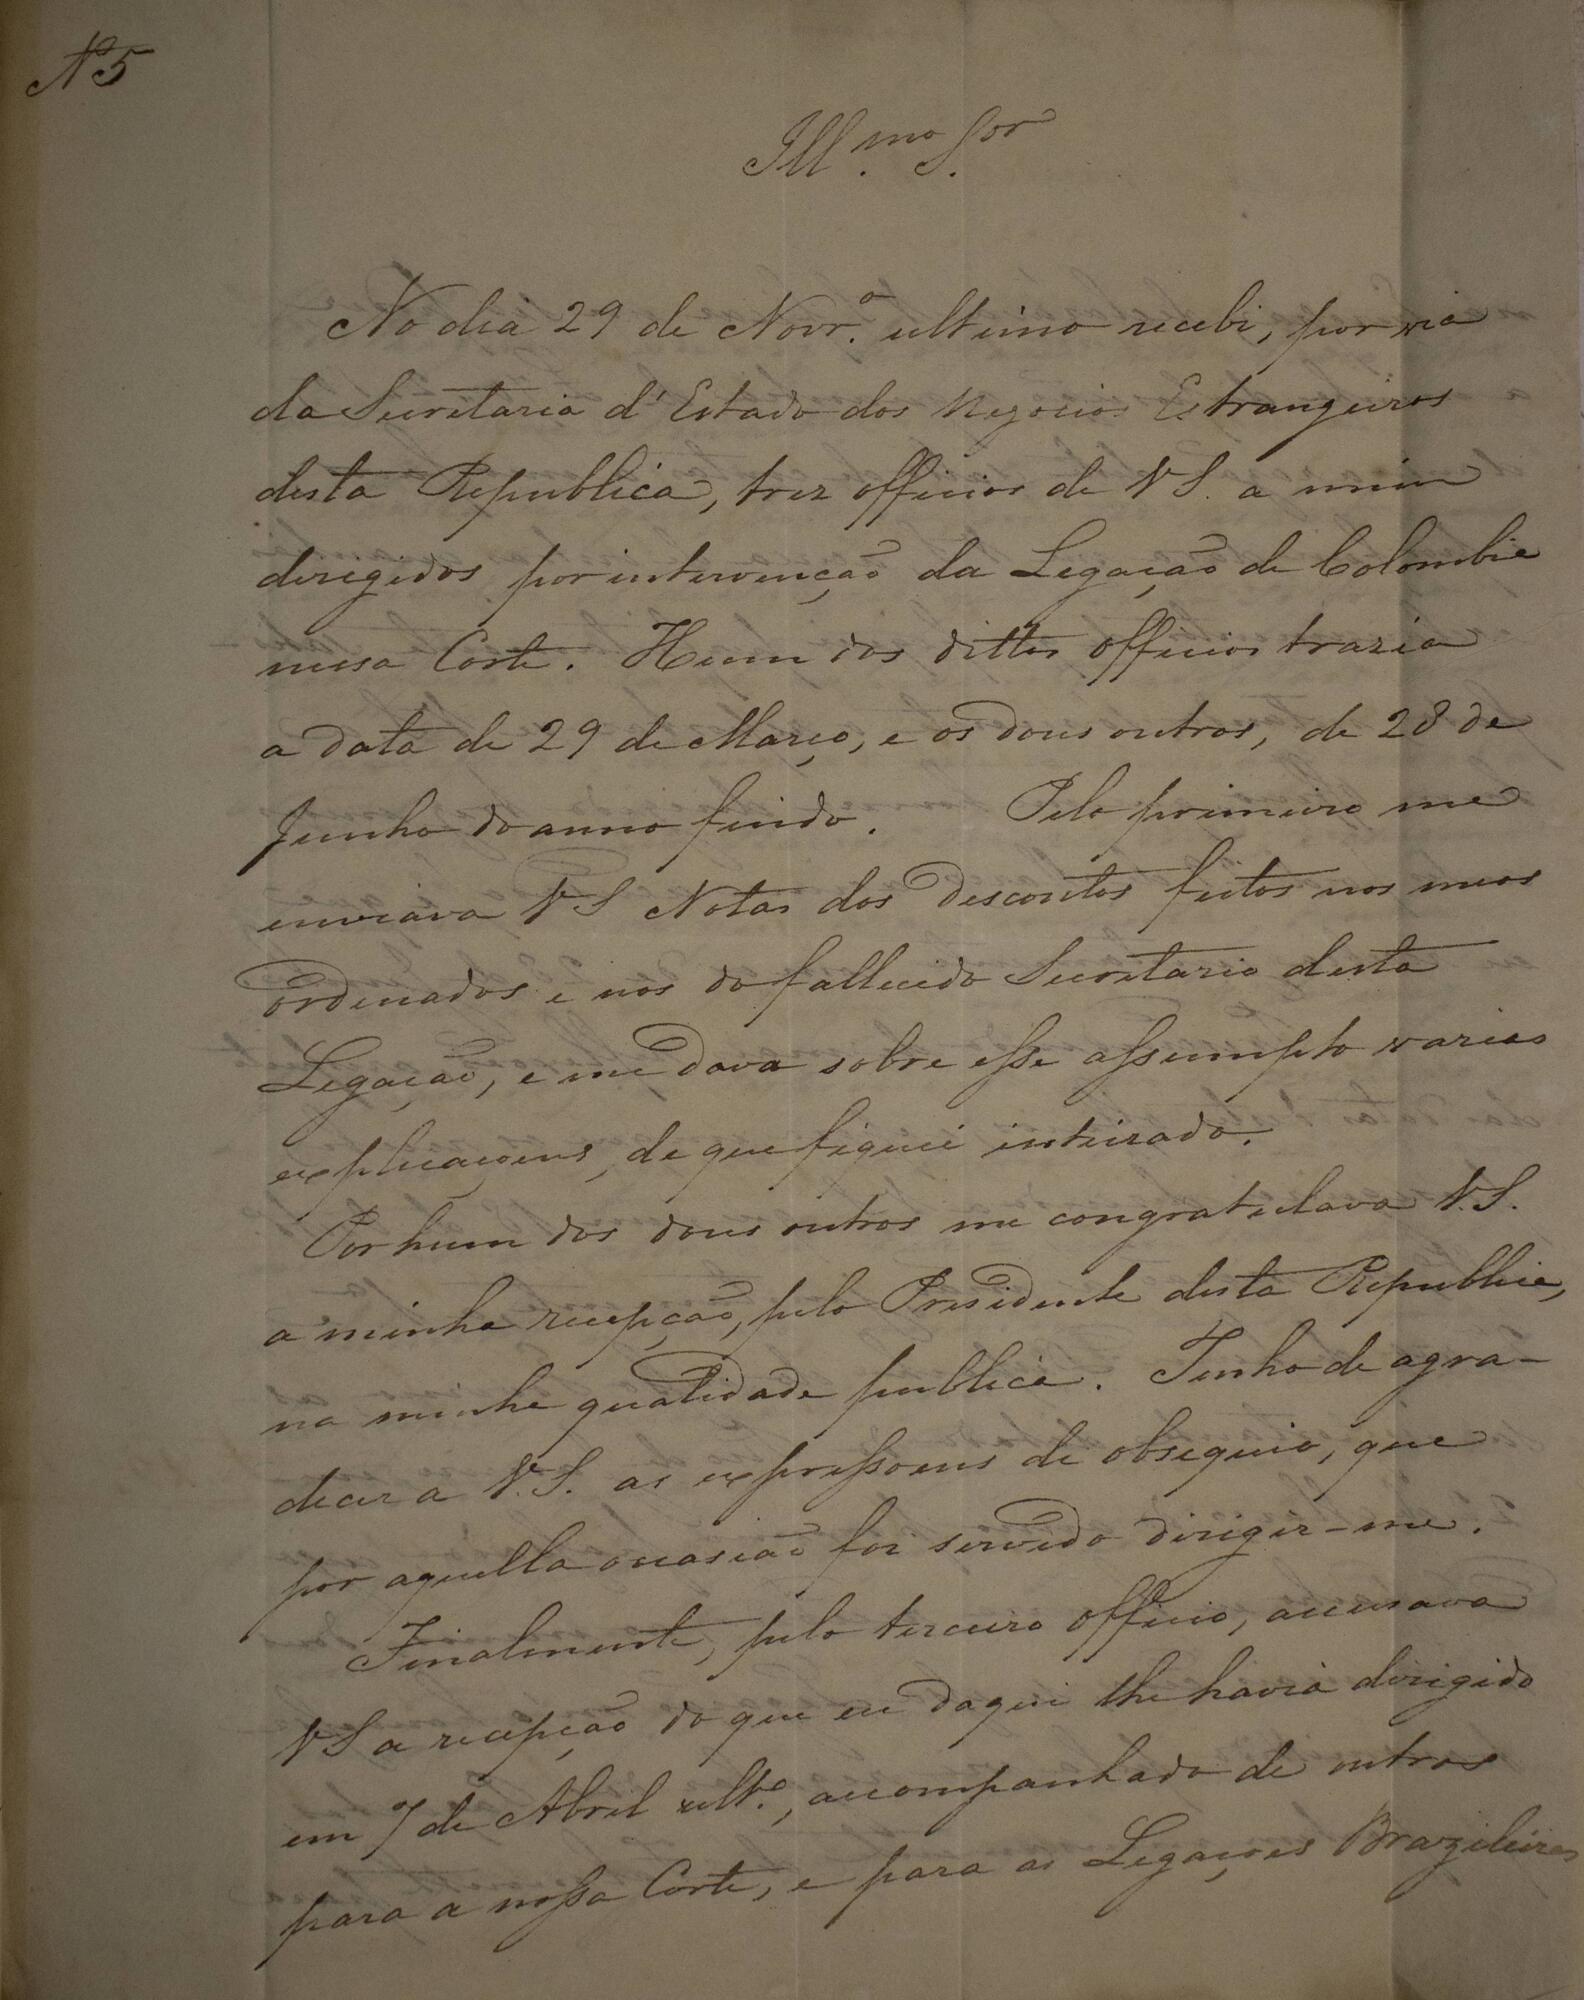 N 5
Ill.mo S.or
No dia 29 de Novr.o ultimo recebi, por via
da Secretaria d'Estado dos Negocios Estrangeiros
desta Republica, trez officios de VS. a mim
dirigidos por intervenção da Legação de Colombia
nessa Corte. Hum dos dittos officios trazia
a data de 29 de Março, e os dous outros, de 28 de
Junho do anno findo. Pelo primeiro me
enviava VS Notas dos Descontos feitos nos meos
ordenados e nos do fallecido Secretario desta
Legação, e me dava sobre esse assumpto varias
explicaçoens, de que fiquei inteirado.
Por hum dos dous outros me congratulava V.S.
a minha recepção, pelo Presidente desta Republica,
na minha qualidade publica. Tenho de agra-
decer a V.S. as expressoens de obsequio, que
por aquella occasião foi servido dirigir-me.
Finalmente, pelo terceiro officio, accusava
VS a recepção do que eu daqui lhe havia dirigido
em 7 de Abril ult.o, accompanhado de outros
para a nossa Corte, e para as Legaçoes Brazileiras